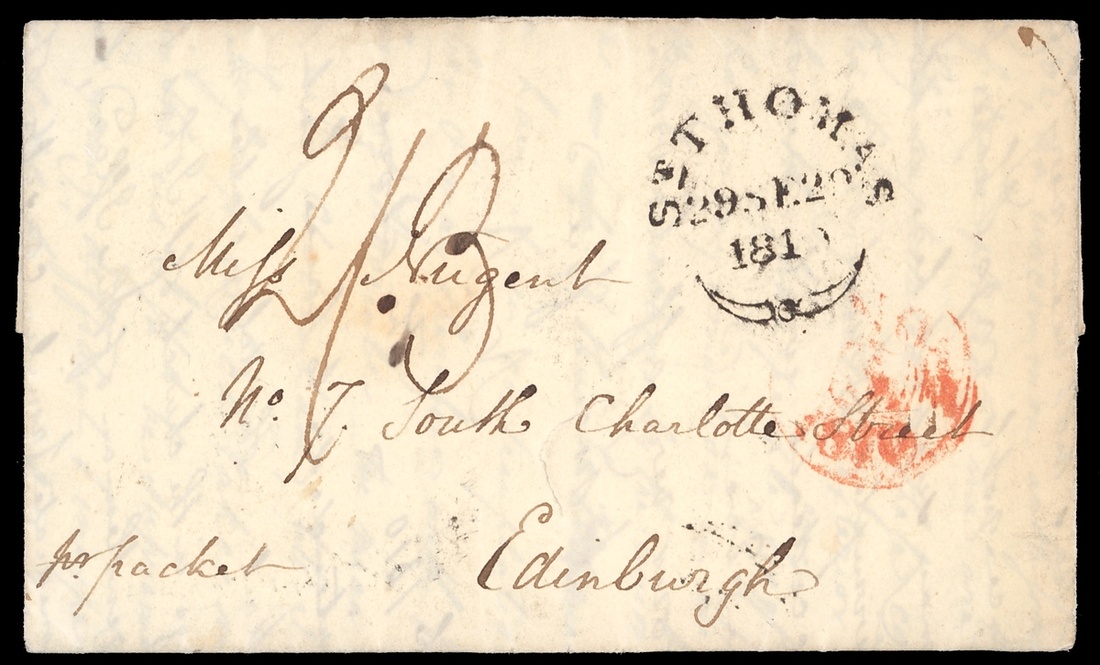 ST THOMAS
29 SE 29
181
2/3
Miss Nugent
No. 7 South Charlotte Street
Edinburgh
pr packet